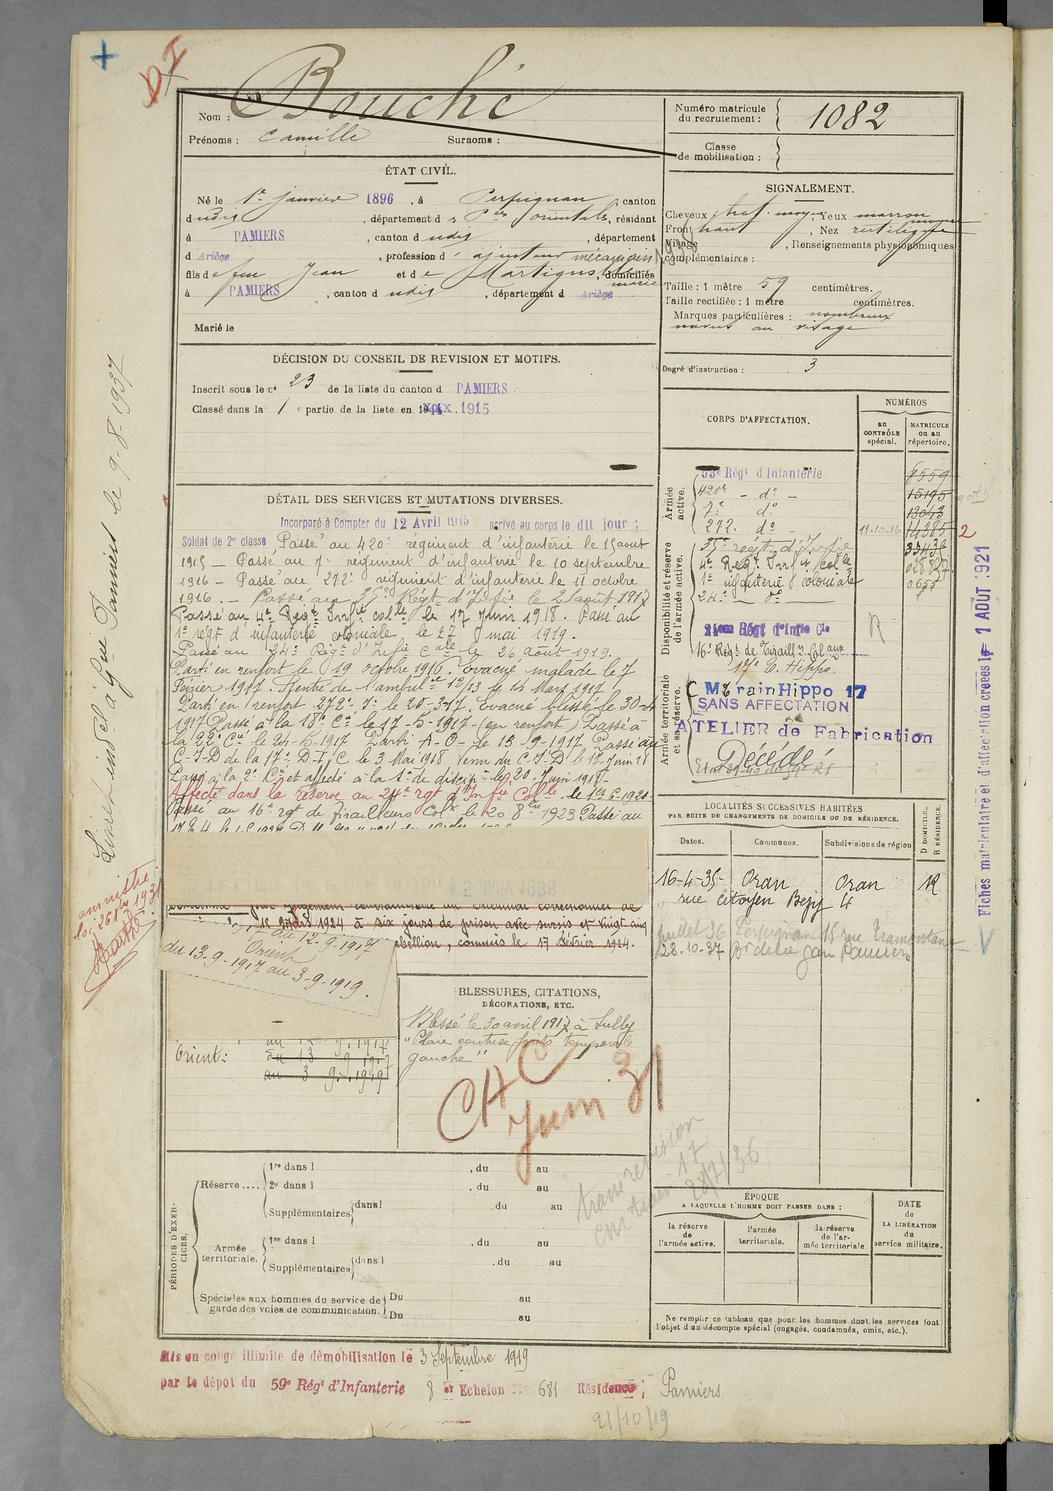 Nom : Bouché
Prénoms : Camille Surnoms :
Numéro matricule
du recrutement : 1082
Classe
de mobilisation :
ÉTAT CIVIL.
Né le 1er janvier 1896, à Perpignan, canton
dudit, département des Pées orientales, résidant
à PAMIERS, canton dudit, département
d Ariège, profession d'ajusteur mécanicien
fils de feu Jean et de Martignol, domiciliés
à PAMIERS, canton dudit, département d Ariège
Marié le
SIGNALEMENT.
Cheveux chat. moyen, Yeux marron
Front haut, Nez rectiligne
Visage, Renseignements physiognomiques
complémentaires :
Taille : 1 mètre 59 centimètres.
Taille rectifiée : 1 mètre centimètres.
Marques particulières : nombreux
au visage
Degré d'instruction : 3
DÉCISION DU CONSEIL DE REVISION ET MOTIFS.
Inscrit sous le no 23 de la liste du canton d PAMIERS
Classé dans la 1e partie de la liste en 1915
CORPS D'AFFECTATION.
NUMÉROS
au
CONTRÔLE
spécial.
MATRICULE
ou au
répertoire.
Armée
active.
53e Régt d'Infanterie 8559
420e - do - 15195
7e do 13043
272. do - 11-10-16 14385 2
Disponibilité et réserve
de l'armée active.
4e Régt Infie colle
1e infanterie coloniale
24e - do -
21eme Régt d'Infie Cle
16e Régt de Tiraill. Colaux
17e E. Hippo.
Armée territoriale
et sa réserve.
Train Hippo 17
SANS AFFECTATION
ATELIER de Fabrication
Décédé
DÉTAIL DES SERVICES ET MUTATIONS DIVERSES.
Incorporé à Compter du 12 Avril 1915 arrivé au corps le dit jour ;
Soldat de 2e classe Passé au 420e régiment d'infanterie le 15 aout
1915 — Passé au 7e régiment d'infanterie le 10 septembre
1916 — Passé au 272e régiment d'infanterie le 11 octobre
1916. — Passé au 35e Régt d'Infie le 2 aout 1917
Passé au 4e Régt Infie colle le 17 Juin 1918. Passé au
1e régt d'infanterie coloniale le 27 mai 1919.
Passé au 24e Régt d'Infie Cale le 26 août 1919.
Parti en renfort le 19 octobre 1916 Evacué malade le 7
Février 1917. Rentré de l'ambulce 12/13 le 14 Mars 1917
Parti en renfort 272e le 28-3-17. Evacué blessé le 30-4
1917 Passé à la 18e Cie le 17-5-1917 (en renfort) Passé à
la 22e Cie le 24-5-1917 Parti A-O- le 13-9-1917 Passé au
C-I-D de la 17e D-I-C le 3 Mai 1918 Venu du C-I-D le 17 Juin 18
Passé à la 2e Cie et affecté à la 1e de discipl. le 20 Juin 1918-
Affecté dans la réserve au 24e rgt d'Infie Colle le 1er 6-1921.
Passé au 16e rgt de Tirailleurs Colx le 20 8bre 1923 Passé au
le mars 1924 à six jours de prison avec sursis et vingt cinq
rébellion, commis le 17 Février 1924.
au 12-9-1917
Orient
du 13-9-1917 au 3-9-1919.
Orient : du 13 9.1917
au 3 9.1919
BLESSURES, CITATIONS,
DÉCORATIONS, ETC.
Blessé le 30 avril 1917 à Sully
"Plaie contuse temporale
gauche"
CAC
Juin 31
LOCALITÉS SUCCESSIVES HABITÉES
PAR SUITE DE CHANGEMENTS DE DOMICILE OU DE RÉSIDENCE.
Dates. Communes. Subdivisions de région D DOMICILE. R RÉSIDENCE.
16-4-35- Oran Oran R
rue citoyen Bézy 4
juillet 36 Perpignan 15 rue Tramontane
28.10.37 Pamiers
PÉRIODES D'EXERCICES.
Réserve.... 1re dans l , du au
2e dans l , du au
Supplémentaires dans l , du au
Armée
territoriale. 1re dans l , du au
Supplémentaires dans l , du au
Spéciales aux hommes du service de
garde des voies de communication. Du au
Du au
ÉPOQUE
A LAQUELLE L'HOMME DOIT PASSER DANS :
la réserve
de
l'armée active.
l'armée
territoriale.
la réserve
de l'ar-
mée territoriale
DATE
de
LA LIBÉRATION
du
service militaire.
Ne remplir ce tableau que pour les hommes dont les services font
l'objet d'un décompte spécial (engagés, condamnés, omis, etc.).
Mis en congé illimité de démobilisation le 3 Septembre 1919
par le dépôt du 59e Régt d'Infanterie 8 Echelon No 681 Résidence ; Pamiers
21/10/19
Pamiers le 9-8-1937
amnistie
Fiches matriculaire et d'affectation créées le 1 AOUT 1921
28/7/36